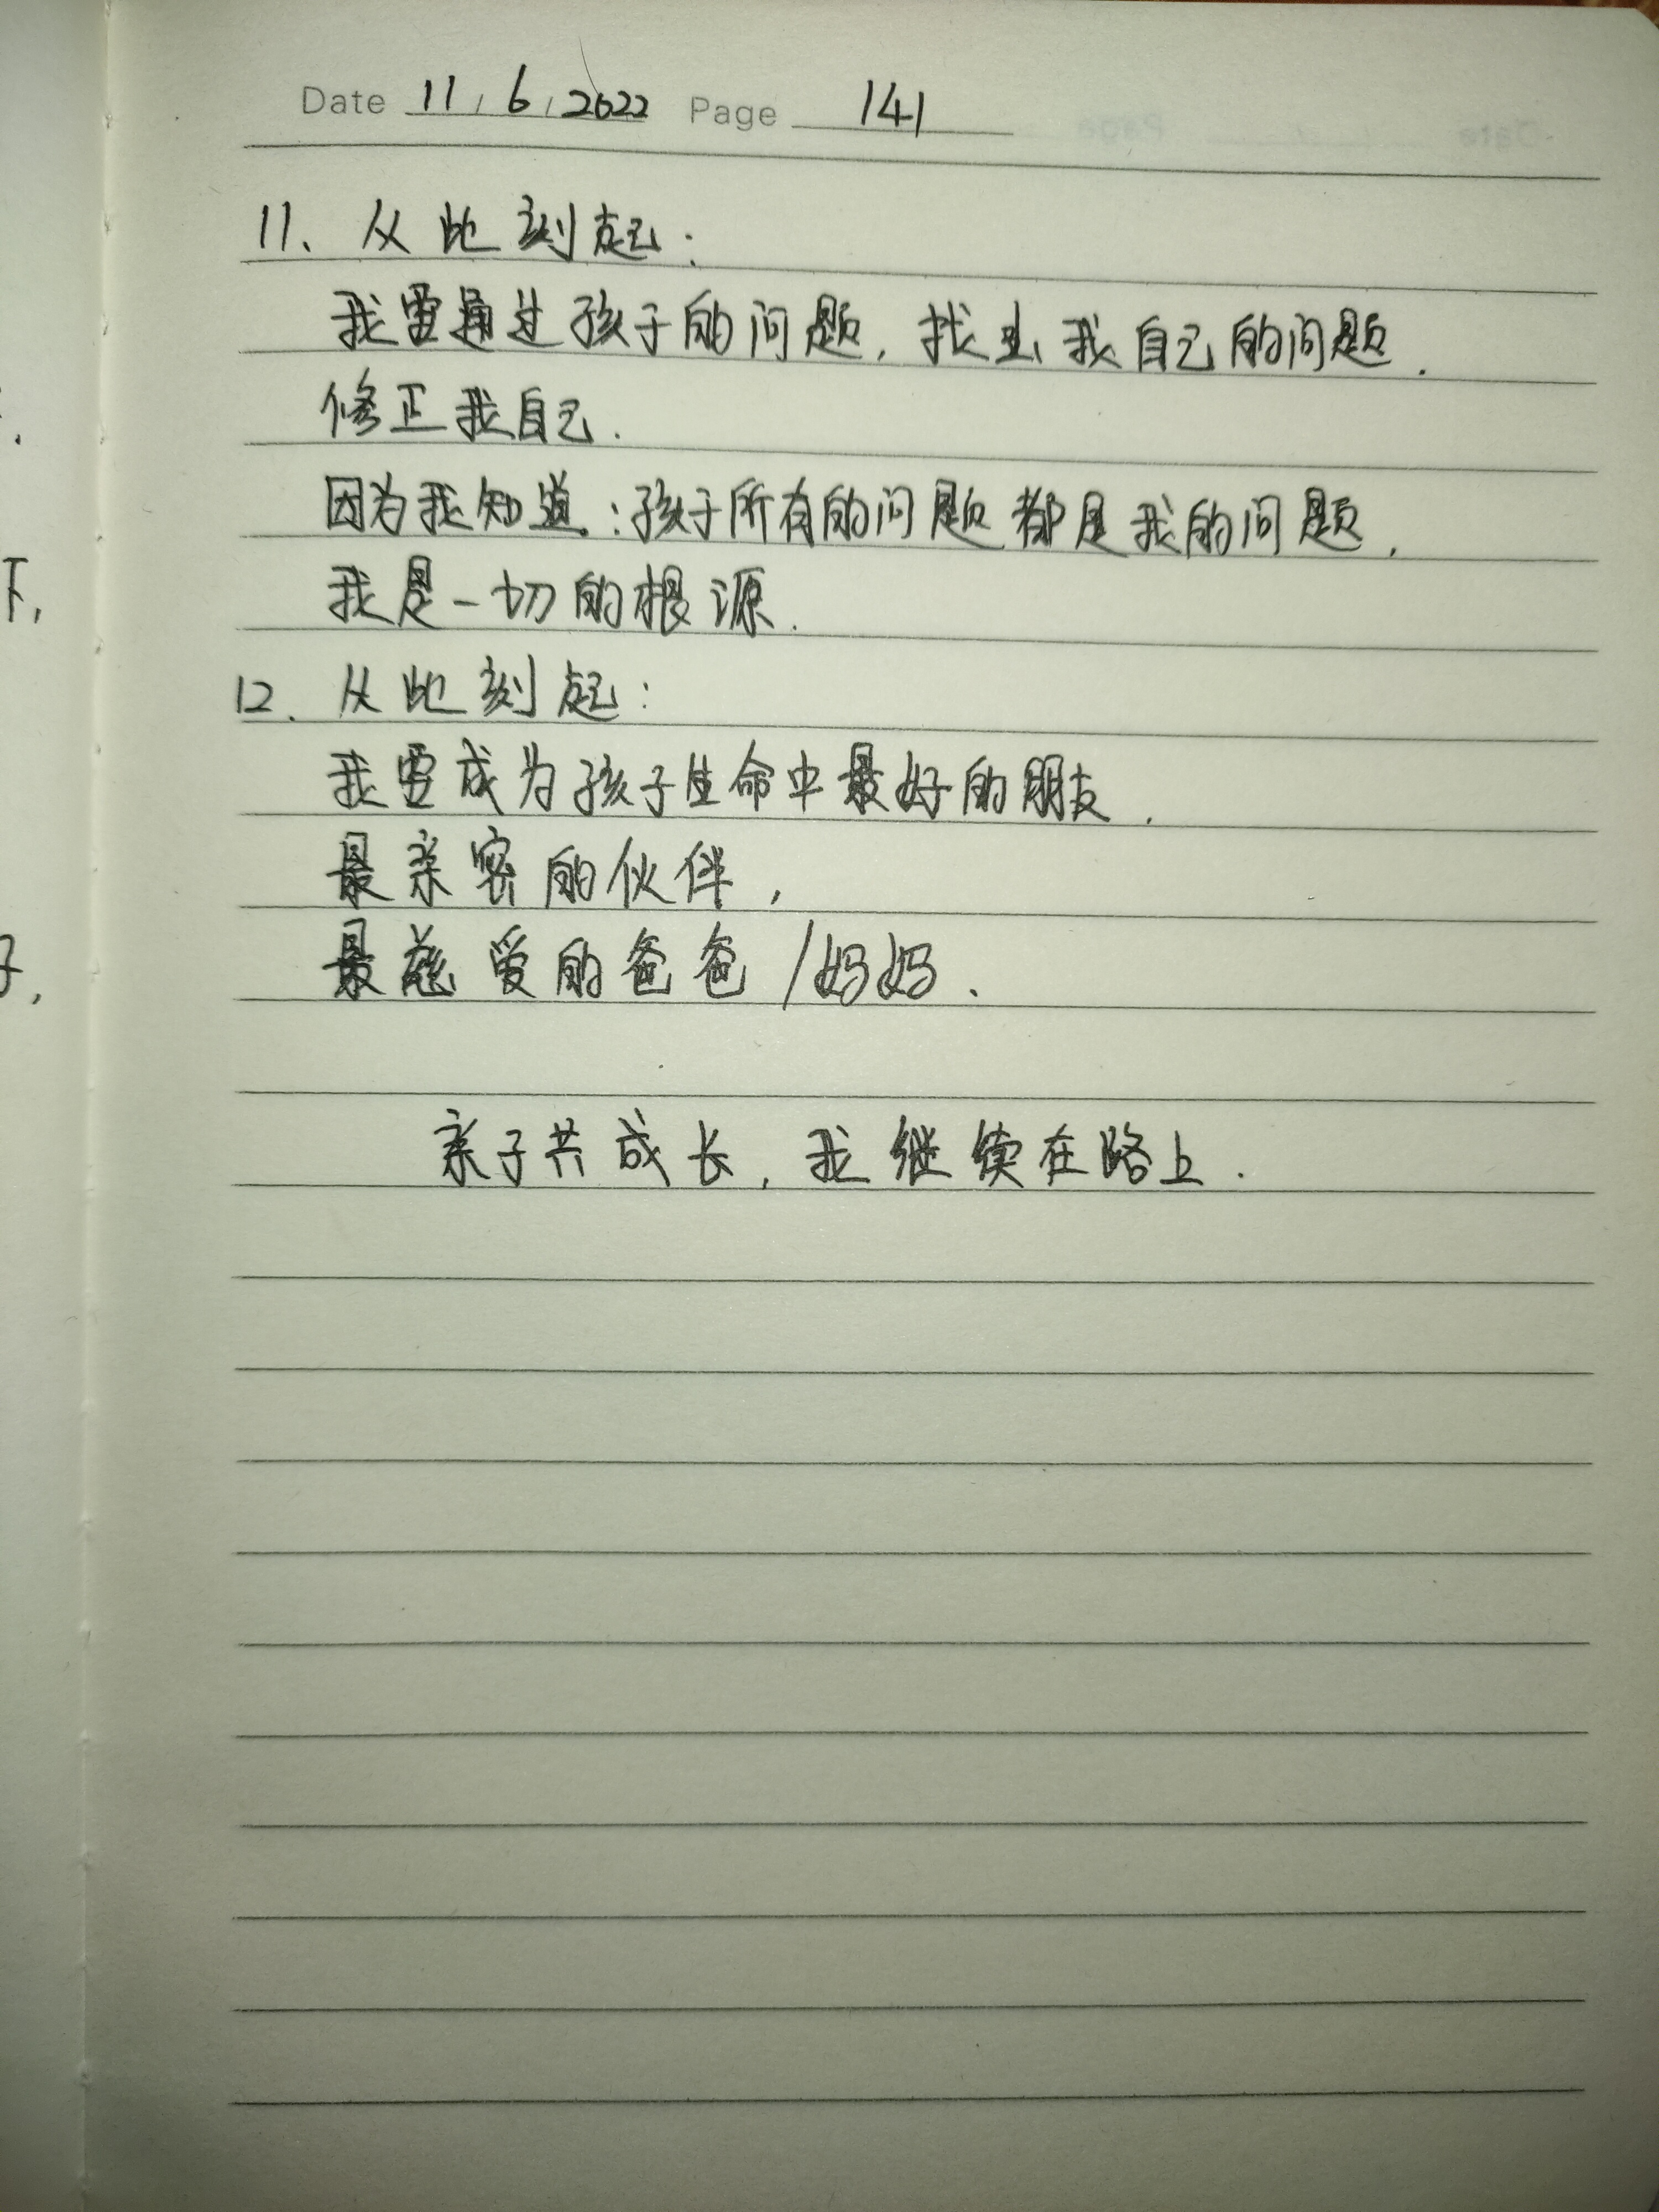 Date 11 / 6 / 2022 Page 141
11、从此刻起：
我要通过孩子的问题，找出我自己的问题．
修正我自己．
因为我知道：孩子所有的问题都是我的问题，
我是一切的根源．
12．从此刻起：
我要成为孩子生命中最好的朋友，
最亲密的伙伴，
最慈爱的爸爸/妈妈、
亲子共成长，我继续在路上．
下，
子，